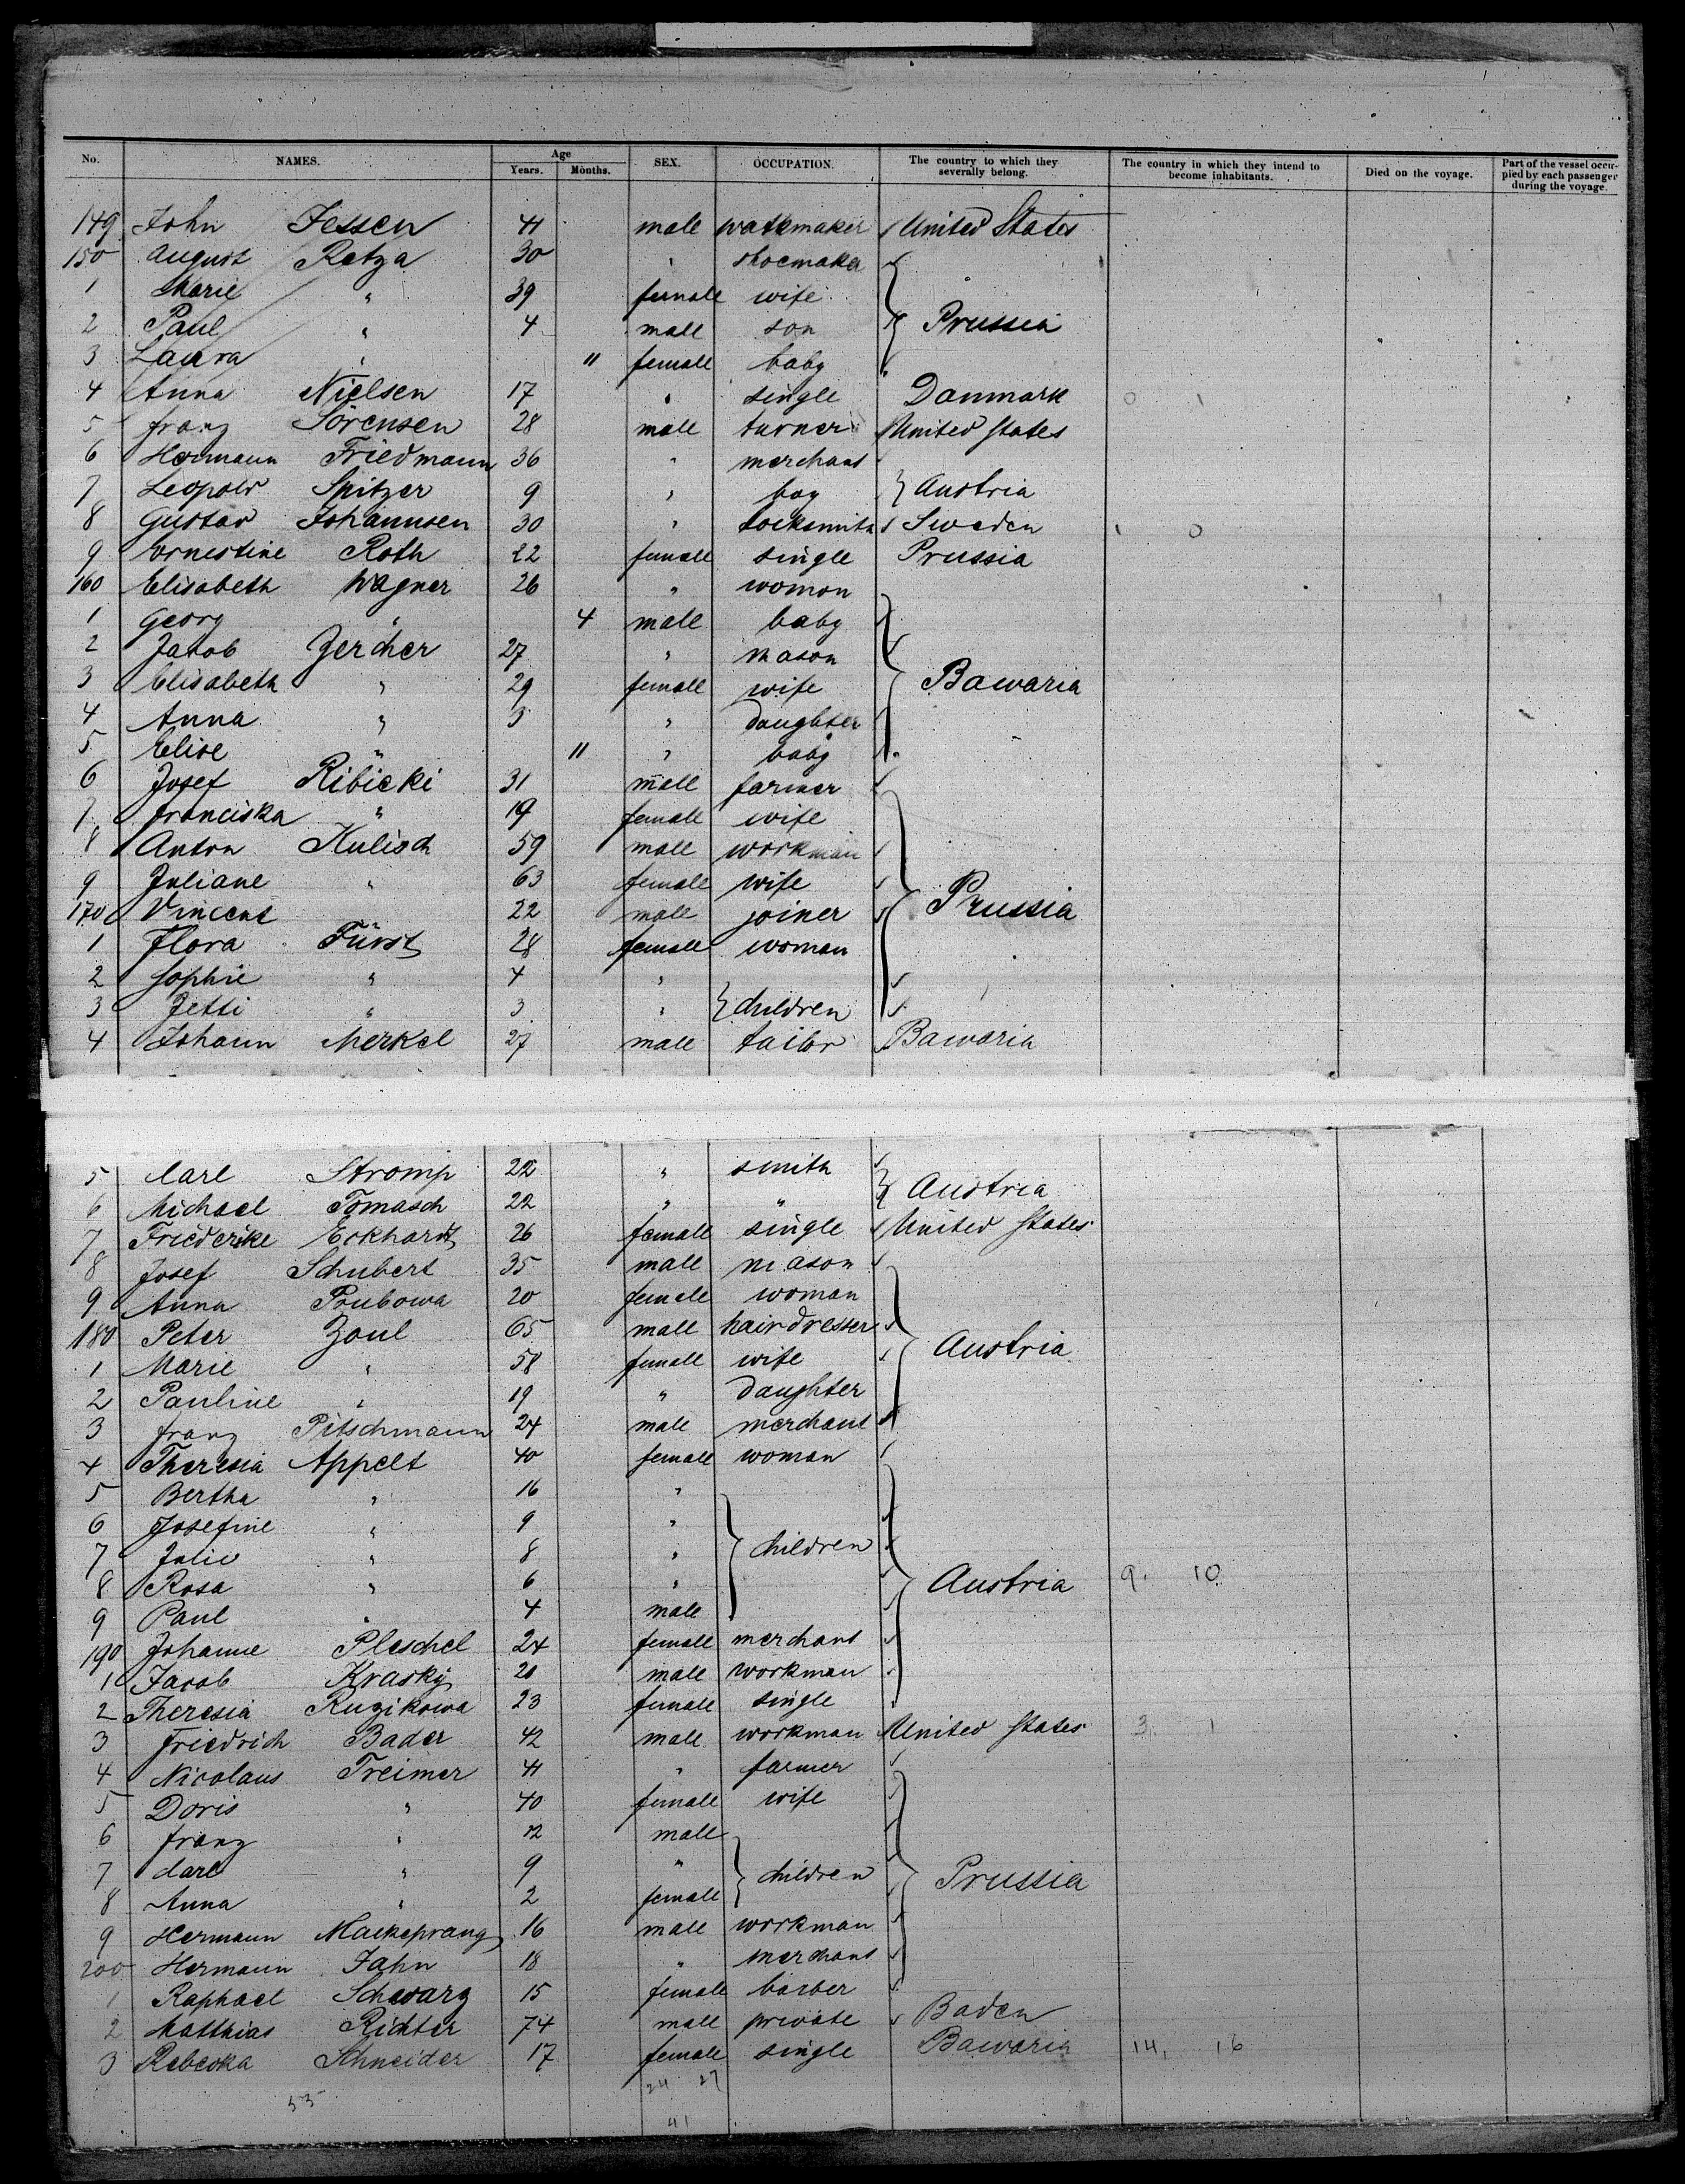 No. NAMES. Age Years. Months. SEX. OCCUPATION. The country to which they severally belong. The country in which they intend to become inhabitants. Died on the voyage. Part of the vessel occupied by each passenger during the voyage.
149 John Jessen 41 male watkmaker United States
150 August Retza 30 " shoemaker
1 Marie " 39 female wife
2 Paul " 4 male son Prussia
3 Laura " 11 female baby
4 Anna Nielsen 17 " single Danmark 0 1
5 franz Sörensen 28 male turner United States
6 Hermann Friedmann 36 " merchant
7 Leopold Spitzer 9 " boy } Austria
8 Gustav Johannsen 30 " locksmith Sweden 1 0
9 Ernestine Roth 22 female single Prussia
160 Elisabeth Wagner 26 " woman
1 Georg " 4 male baby
2 Jacob Zercher 27 " mason
3 Elisabeth " 29 female wife Bawaria
4 Anna " 3 " daughter
5 Elise " 11 " baby
6 Josef Ribicki 31 male farmer
7 franciska " 19 female wife
8 Anton Kulisch 59 male workman
9 Juliane " 63 female wife
170 Vincent " 22 male joiner Prussia
1 Flora Fürst 28 female woman
2 Sophie " 4 "
3 Jetti " 3 " } children
4 Johann Merkel 27 male tailor Bawaria
5 Carl Stromp 22 " smith
6 Michael Tomasch 22 " " } Austria
7 Friederike Eckhardt 26 female single United States
8 Josef Schubert 35 male mason
9 Anna Poubowa 20 female woman
180 Peter Zoul 65 male hairdresser
1 Marie " 58 female wife Austria
2 Pauline " 19 " daughter
3 franz Pitschmann 24 male merchant
4 Theresia Appelt 40 female woman
5 Bertha " 16 "
6 Josefine " 9 "
7 Julie " 8 " } children
8 Rosa " 6 " Austria 9. 10
9 Paul " 4 male
190 Johanne Pleschel 24 female merchant
1 Jacob Krasky 20 male workman
2 Theresia Ruzikowa 23 female single
3 Friedrich Bader 42 male workman United States 3. 1
4 Nicolaus Treimer 41 " farmer
5 Doris " 40 female wife
6 franz " 12 male
7 Carl " 9 " } children Prussia
8 Anna " 2 female
9 Hermann Mackeprang 16 male workman
200 Hermann Jahn 18 " merchant
1 Raphael Schwarz 15 female barber
2 Matthias Richter 74 male private Baden
3 Rebecka Schneider 17 female single Bawaria 14. 16
24 27
55
41